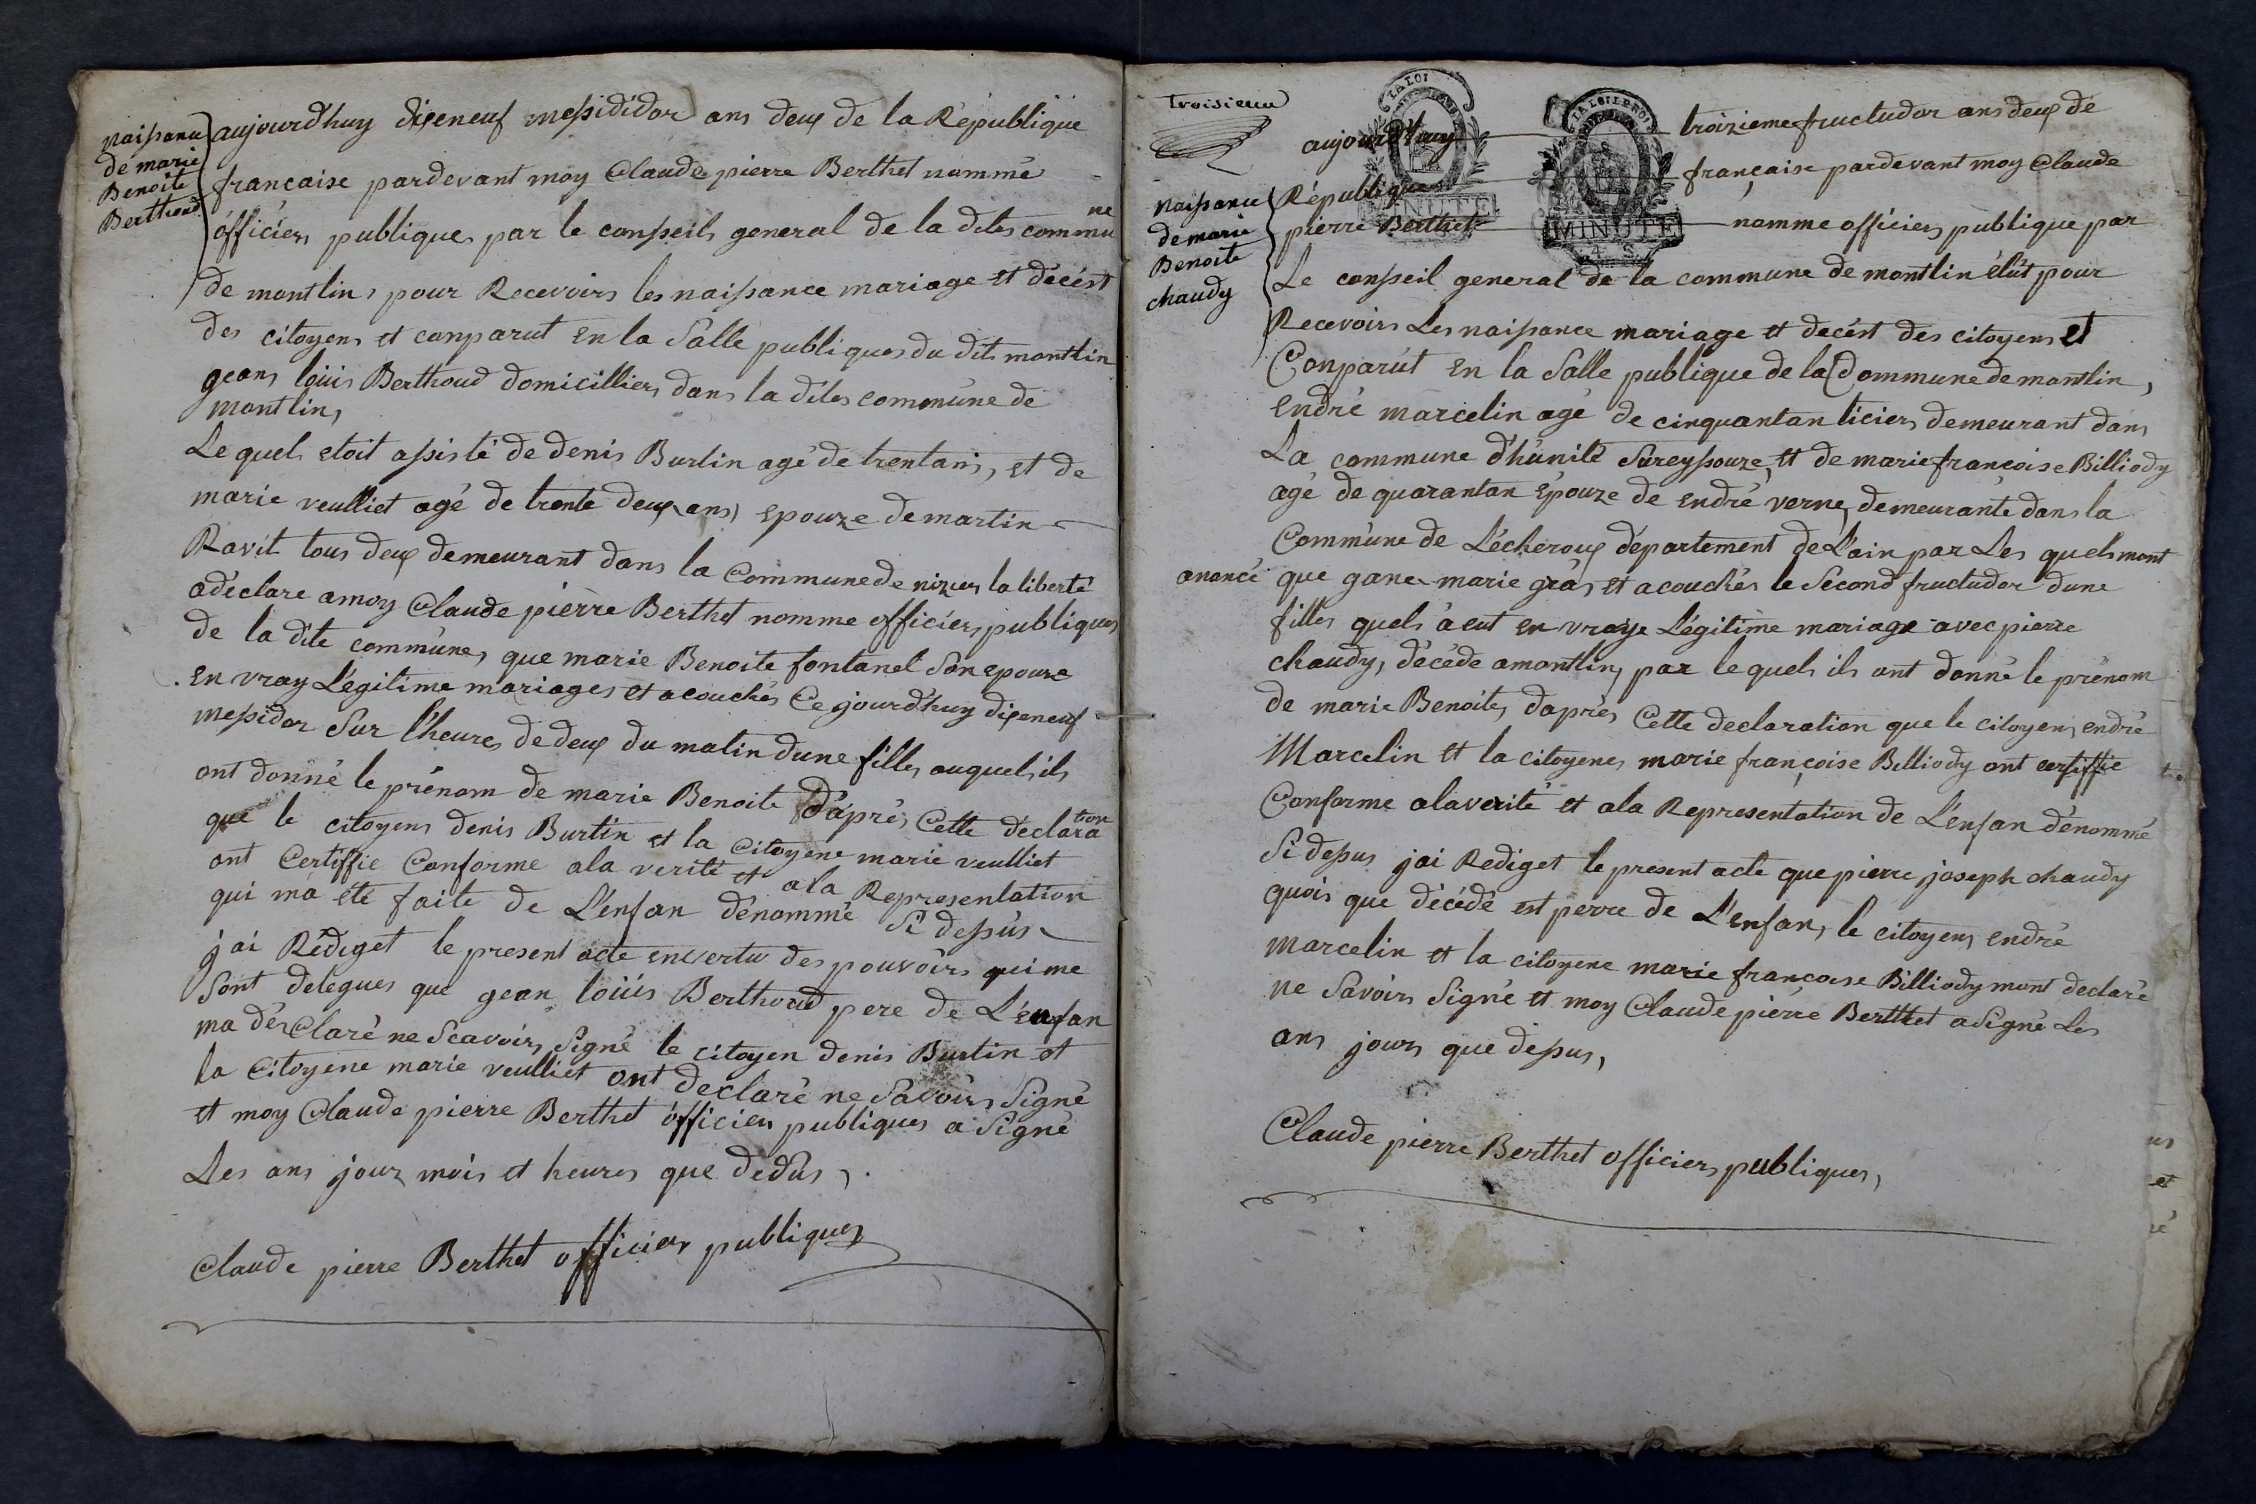 naissance
de marie
Benoite
Berthoud
aujourd'huy dixeneuf messididor ans deux de la République
francaise pardevant moy Claude pierre Berthet nommé
officier publiques par le conseils general de la dite commune
de montlin, pour Recevoirs les naissance mariage et décést
des citoyens et comparut en la Salle publiques du dits montlin
gean louis Berthoud domicillier dans la dites commune de
montlin,
Le quel etoit assisté de denis Burtin agé de trentans, et de
marie veulliet agé de trente deux ans epouze de martin
Ravit tous deux demeurant dans la Commune de nizier la liberté
a déclare a moy Claude pierre Berthet nomme officier publiques
de la dite commune, que marie Benoite fontanel Son epouze
en vray Légitime mariages et acouchés Ce jourd'huy dixeneuf
messidor Sur l'heures de deux du matin dune filles auquels ils
ont donné le prénom de marie Benoite D'aprés Cette déclaration
que le citoyens denis Burtin et la citoyene marie veulliet
ont Certiffie Conforme ala verité et ala Representation
qui ma été faite de L'enfan dénommé Si dessus
j'ai Rédiget le present acte envertu des pouvoirs qui me
Sont delegues que gean louis Berthoud pere de L'enfan
ma déClaré ne Scavoirs Signé le citoyen denis Burtin et
la citoyene marie veulliet ont declaré ne Savoirs Signé
et moy Claude pierre Berthet officier publiques a Signé
Les ans jour mois et heures que dedus,
Claude pierre Berthet officier publiques
troisieme
naissance
de marie
Benoite
chaudy
LA LOI
MINUTE
LA LOI LE ROI
MINUTE
4 S
aujourd'huy troizieme fructudor ans deux de
République française pardevant moy Claude
pierre Berthet nomme officiers publique par
Le conseil general de la commune de montlin élût pour
Recevoirs Les naissance mariage et decést des citoyens et
Conparút en la Salle publique de la Commune de montlin,
endré marcelin agé de cinquantan ticier demeurant dans
La commune d'húnité Sureyssouze, et de marie françoise Billiody
agé de quarantan épouze de endré verne, demeurante dans la
Commúne de Lécheroux département de L'ain par Les quels mont
anoncé que gane marie gras et acouchés le Second fructudor dune
filles quels à eut en vraye Légitime mariage avec pierre
chaudy, décéde amontlin, par le quels ils ont donné le prénom
de marie Benoite, daprés Cette declaration que le citoyens endré
Marcelin et la citoyenes marie françoise Billiody ont certiffie
Conforme ala verité et ala Representation de L'enfan dénommé
Si dessus jai Rediget le present acte que pierre joseph chaudy
quois que décédé est perre de L'enfan, le citoyens endré
marcelin et la citoyene marie francoise Billiody mont declaré
ne Savoirs Signé et moy Claude pierre Berthet a Signé Les
ans jours que dessus,
Claude pierre Berthet officiers publiques,
et